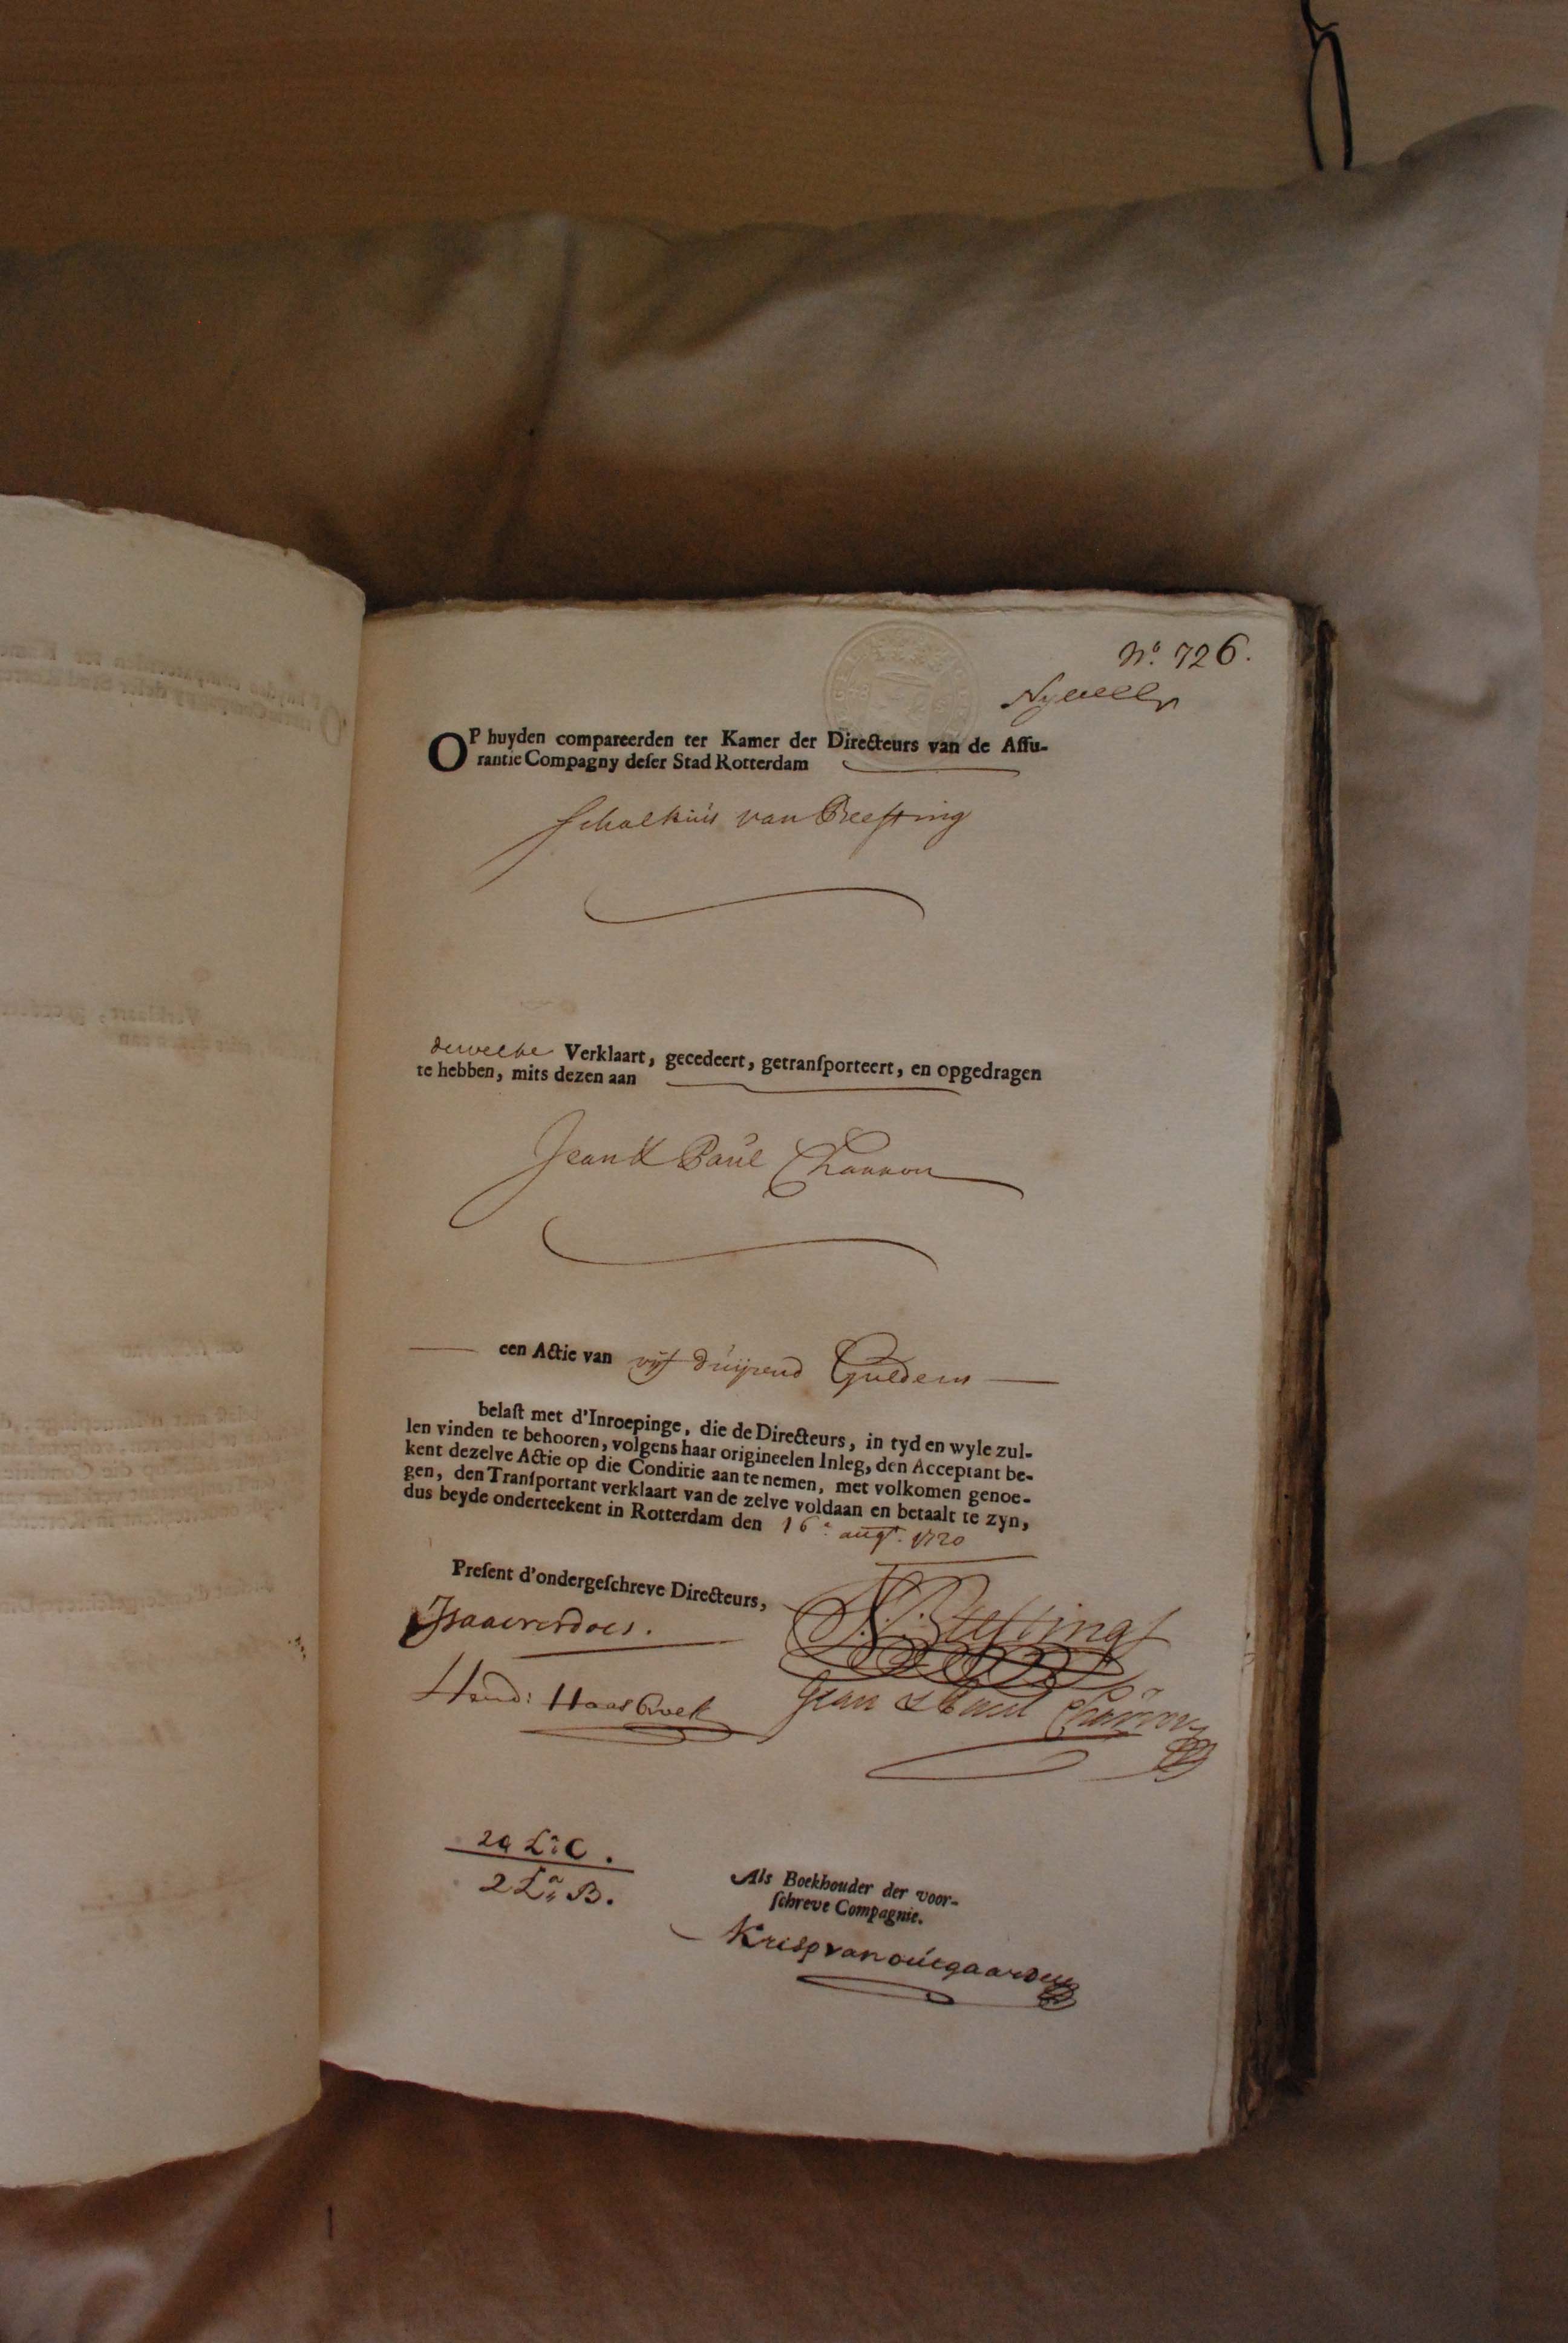 No. 726.
OP huyden compareerden ter Kamer der Directeurs van de Assu-
rantie Compagny deser Stad Rotterdam
Schalkuis van Beefting
dewelke Verklaart, gecedeert, getransporteert, en opgedragen
te hebben, mits dezen aan
Jean & Paul Channon
een Actie van vijf duijzend Guldens
belast met d'Inroepinge, die de Directeurs, in tyd en wyle zul-
len vinden te behooren, volgens haar origineelen Inleg, den Acceptant be-
kent dezelve Actie op die Conditie aan te nemen, met volkomen genoe-
gen, den Transportant verklaart van de zelve voldaan en betaalt te zyn,
dus beyde onderteekent in Rotterdam den 16 augt. 1720
Present d'ondergeschreve Directeurs,
Hend: Haasbroek
Jean & Paul
29 La C.
2 La B.
Als Boekhouder der voor-
schreve Compagnie.
Krisp van outgaarden